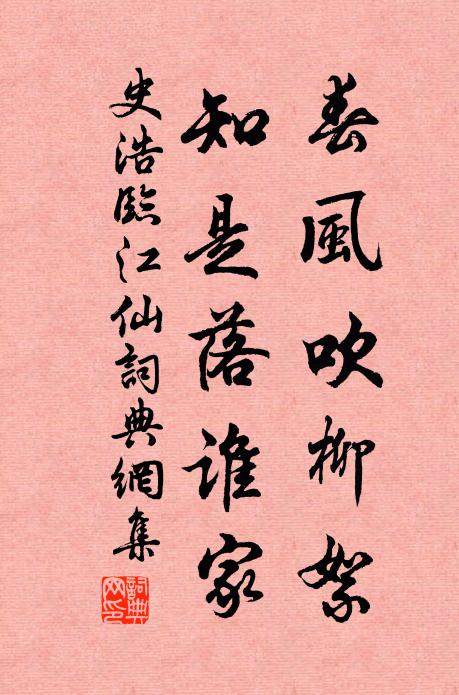 春風吹柳絮
知是落誰家
史浩臨江仙詞典網集
詞典
網印